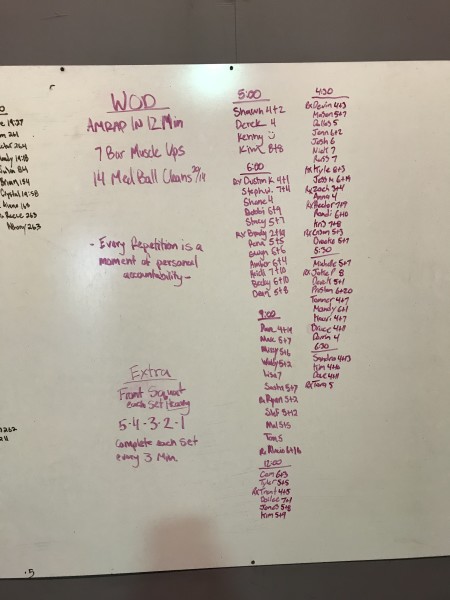 WOD
AMRAP IN 12 Min
7 Bar Muscle Ups
14 Med Ball Cleans 20/14
- Every Repetition is a
moment of personal
accountability -
Extra
Front Squat
each set Heavy
5-4-3-2-1
Complete each set
every 3 Min.
5:00
Shawn 4+2
Derek 4
Kenny
Kim 8+8
6:00
Rx Dustin K 4+1
Steph W. 7+4
Shane 4
Debbi 6+9
Stacy 5+7
Rx Brandy
5+5
6+6
Amber 6+4
Heidi 7+10
Becky 6+10
Dean 5+8
9:00
4+14
5+7
Missy 5+6
Wally 5+2
Lisa 7
Sasha 5+7
Rx Ryan 5+2
5+12
Mel 5+5
Tom 5
Rx Mario 6+16
12:00
Cam 6+3
Tyler 5+5
Rx Trent 4+5
7+1
Jonas 5+8
Kim 5+9
4:30
Rx Devin 4+3
5+7
Dallas 5
Jenn 6+2
Josh 6
Nick 7
Russ 7
Rx Kyle 8+3
Jess 6+14
Rx Zach 3+4
Anna 4
Rx Hector 7+9
Randi 6+10
7+8
5+3
Brooke 5+7
5:30
Michelle 5+7
Rx Jake P 8
5+1
Preston 6+20
Tanner 4+7
Mandy 6+1
4+7
Bruce 4+11
Darin 4
6:30
Sandra 4+13
Kim 4+10
Dave 4+11
Rx Tara 5
19:27
261
264
19:18
84
154
Crystal 19:58
165
Reece 263
263
262
211
.5